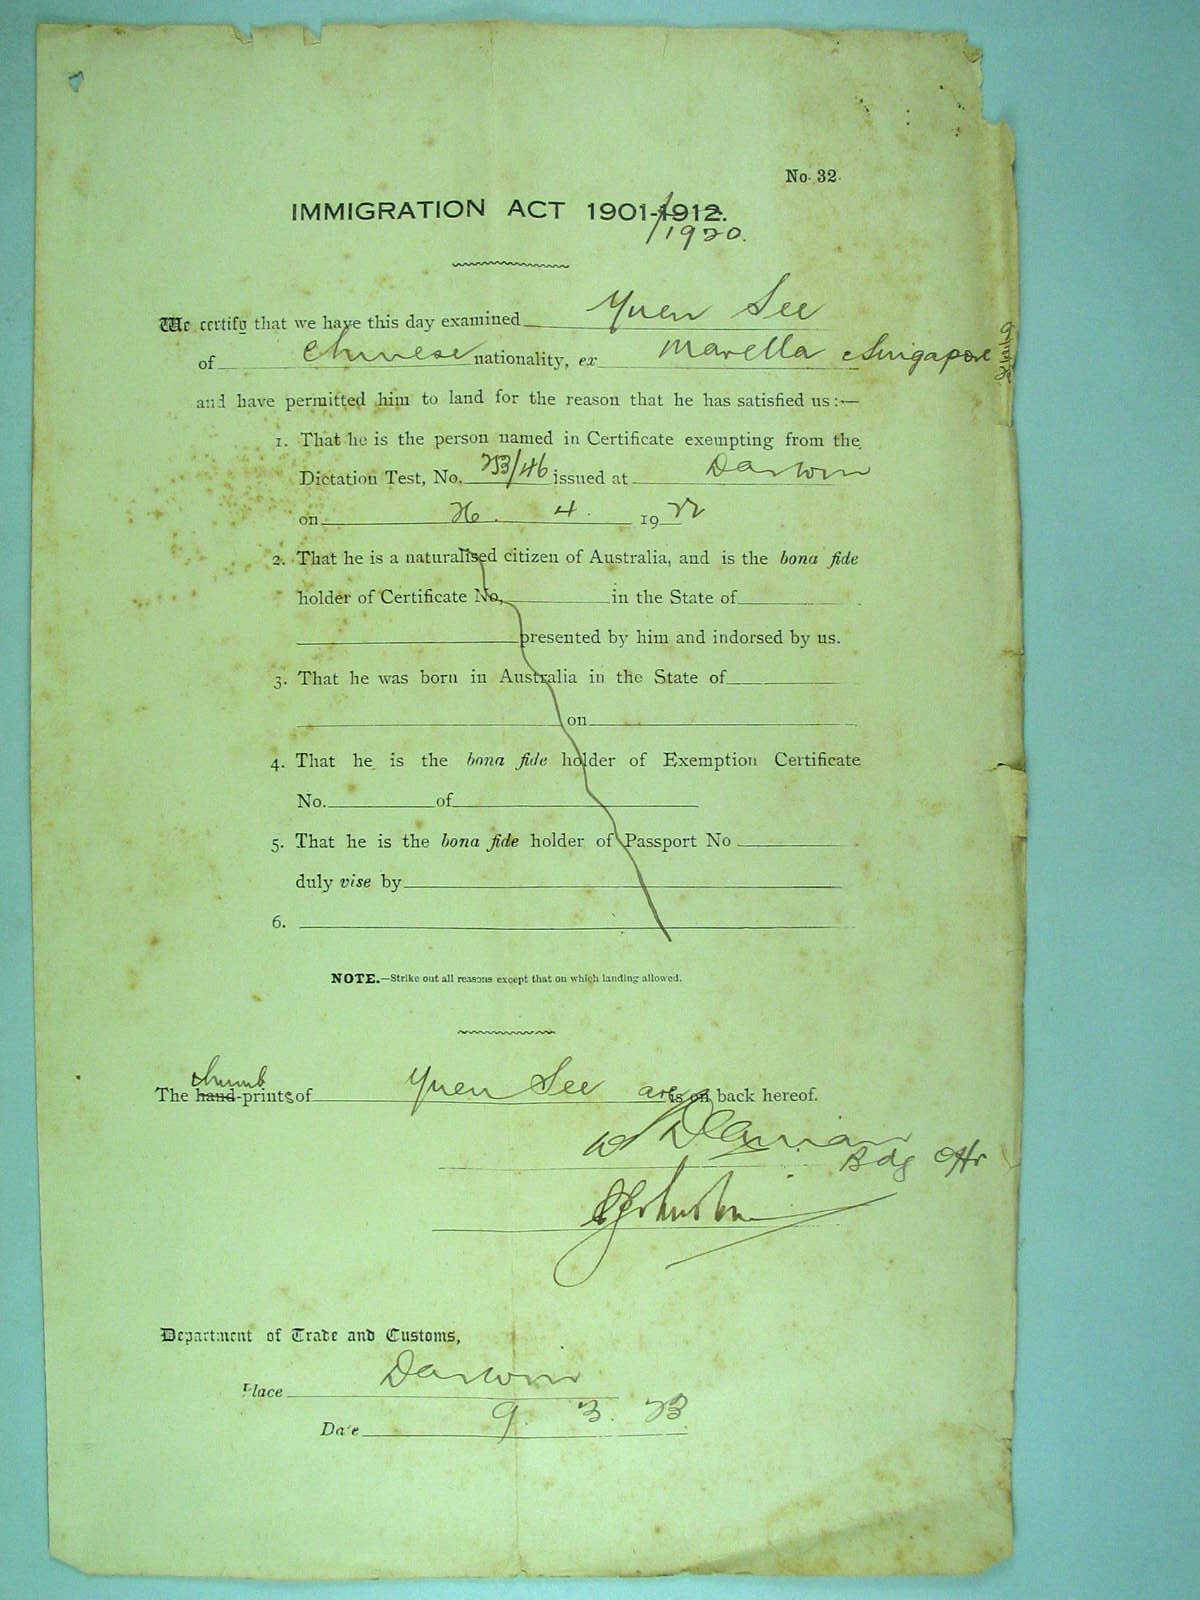 No. 32.
IMMIGRATION ACT 1901-1912.
/1920.
We certify that we have this day examined Yuen See
of Chinese nationality, ex Marella Singapore
and have permitted him to land for the reason that he has satisfied us:—
1. That he is the person named in Certificate exempting from the
Dictation Test, No. 233/46 issued at Darwin
on 26. 4. 1922
2. That he is a naturalised citizen of Australia, and is the bona fide
holder of Certificate No. in the State of
presented by him and indorsed by us.
3. That he was born in Australia in the State of
on
4. That he is the bona fide holder of Exemption Certificate
No. of
5. That he is the bona fide holder of Passport No
duly vise by
6.
NOTE.—Strike out all reasons except that on which landing allowed.
thumb
The hand-prints of Yuen See are is on back hereof.
Bdg Offr
Johnston
Department of Trade and Customs,
Place Darwin
Date 9. 3. 23